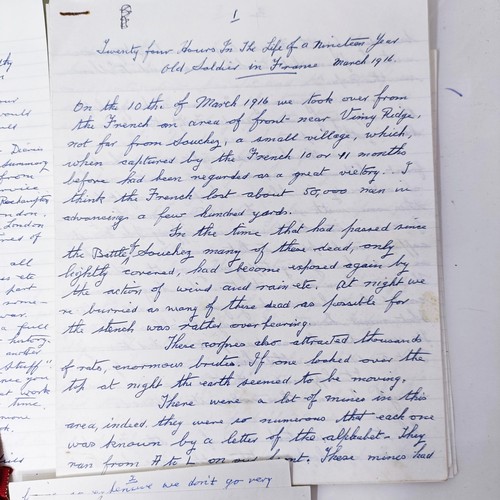 1
Twenty four Hours In The Life of a Nineteen Year
Old Soldier in France March 1916.
On the 10th of March 1916 we took over from
the French an area of front near Vimy Ridge,
not far from Souchez, a small village, which,
when captured by the French 10 or 11 months
before had been regarded as a great victory. I
think the French lost about 50,000 men in
advancing a few hundred yards.
In the time that had passed since
the Battle of Souchez many of these dead, only
lightly covered, had become exposed again by
the action of wind and rain etc. At night we
re burried as many of these dead as possible for
the stench was rather overbearing.
These corpses also attracted thousands
of rats, enormous brutes. If one looked over the
top at night the earth seemed to be moving.
There were a lot of mines in this
area, indeed they were so numerous that each one
was known by a letter of the alphabet. They
ran from A to L on our front. These mines had
we don't go very
Diana
summary
from
Roehampton
London
all
etc
part
some-
war.
a full
history.
another
Stuff"
you
at work
time.
work.